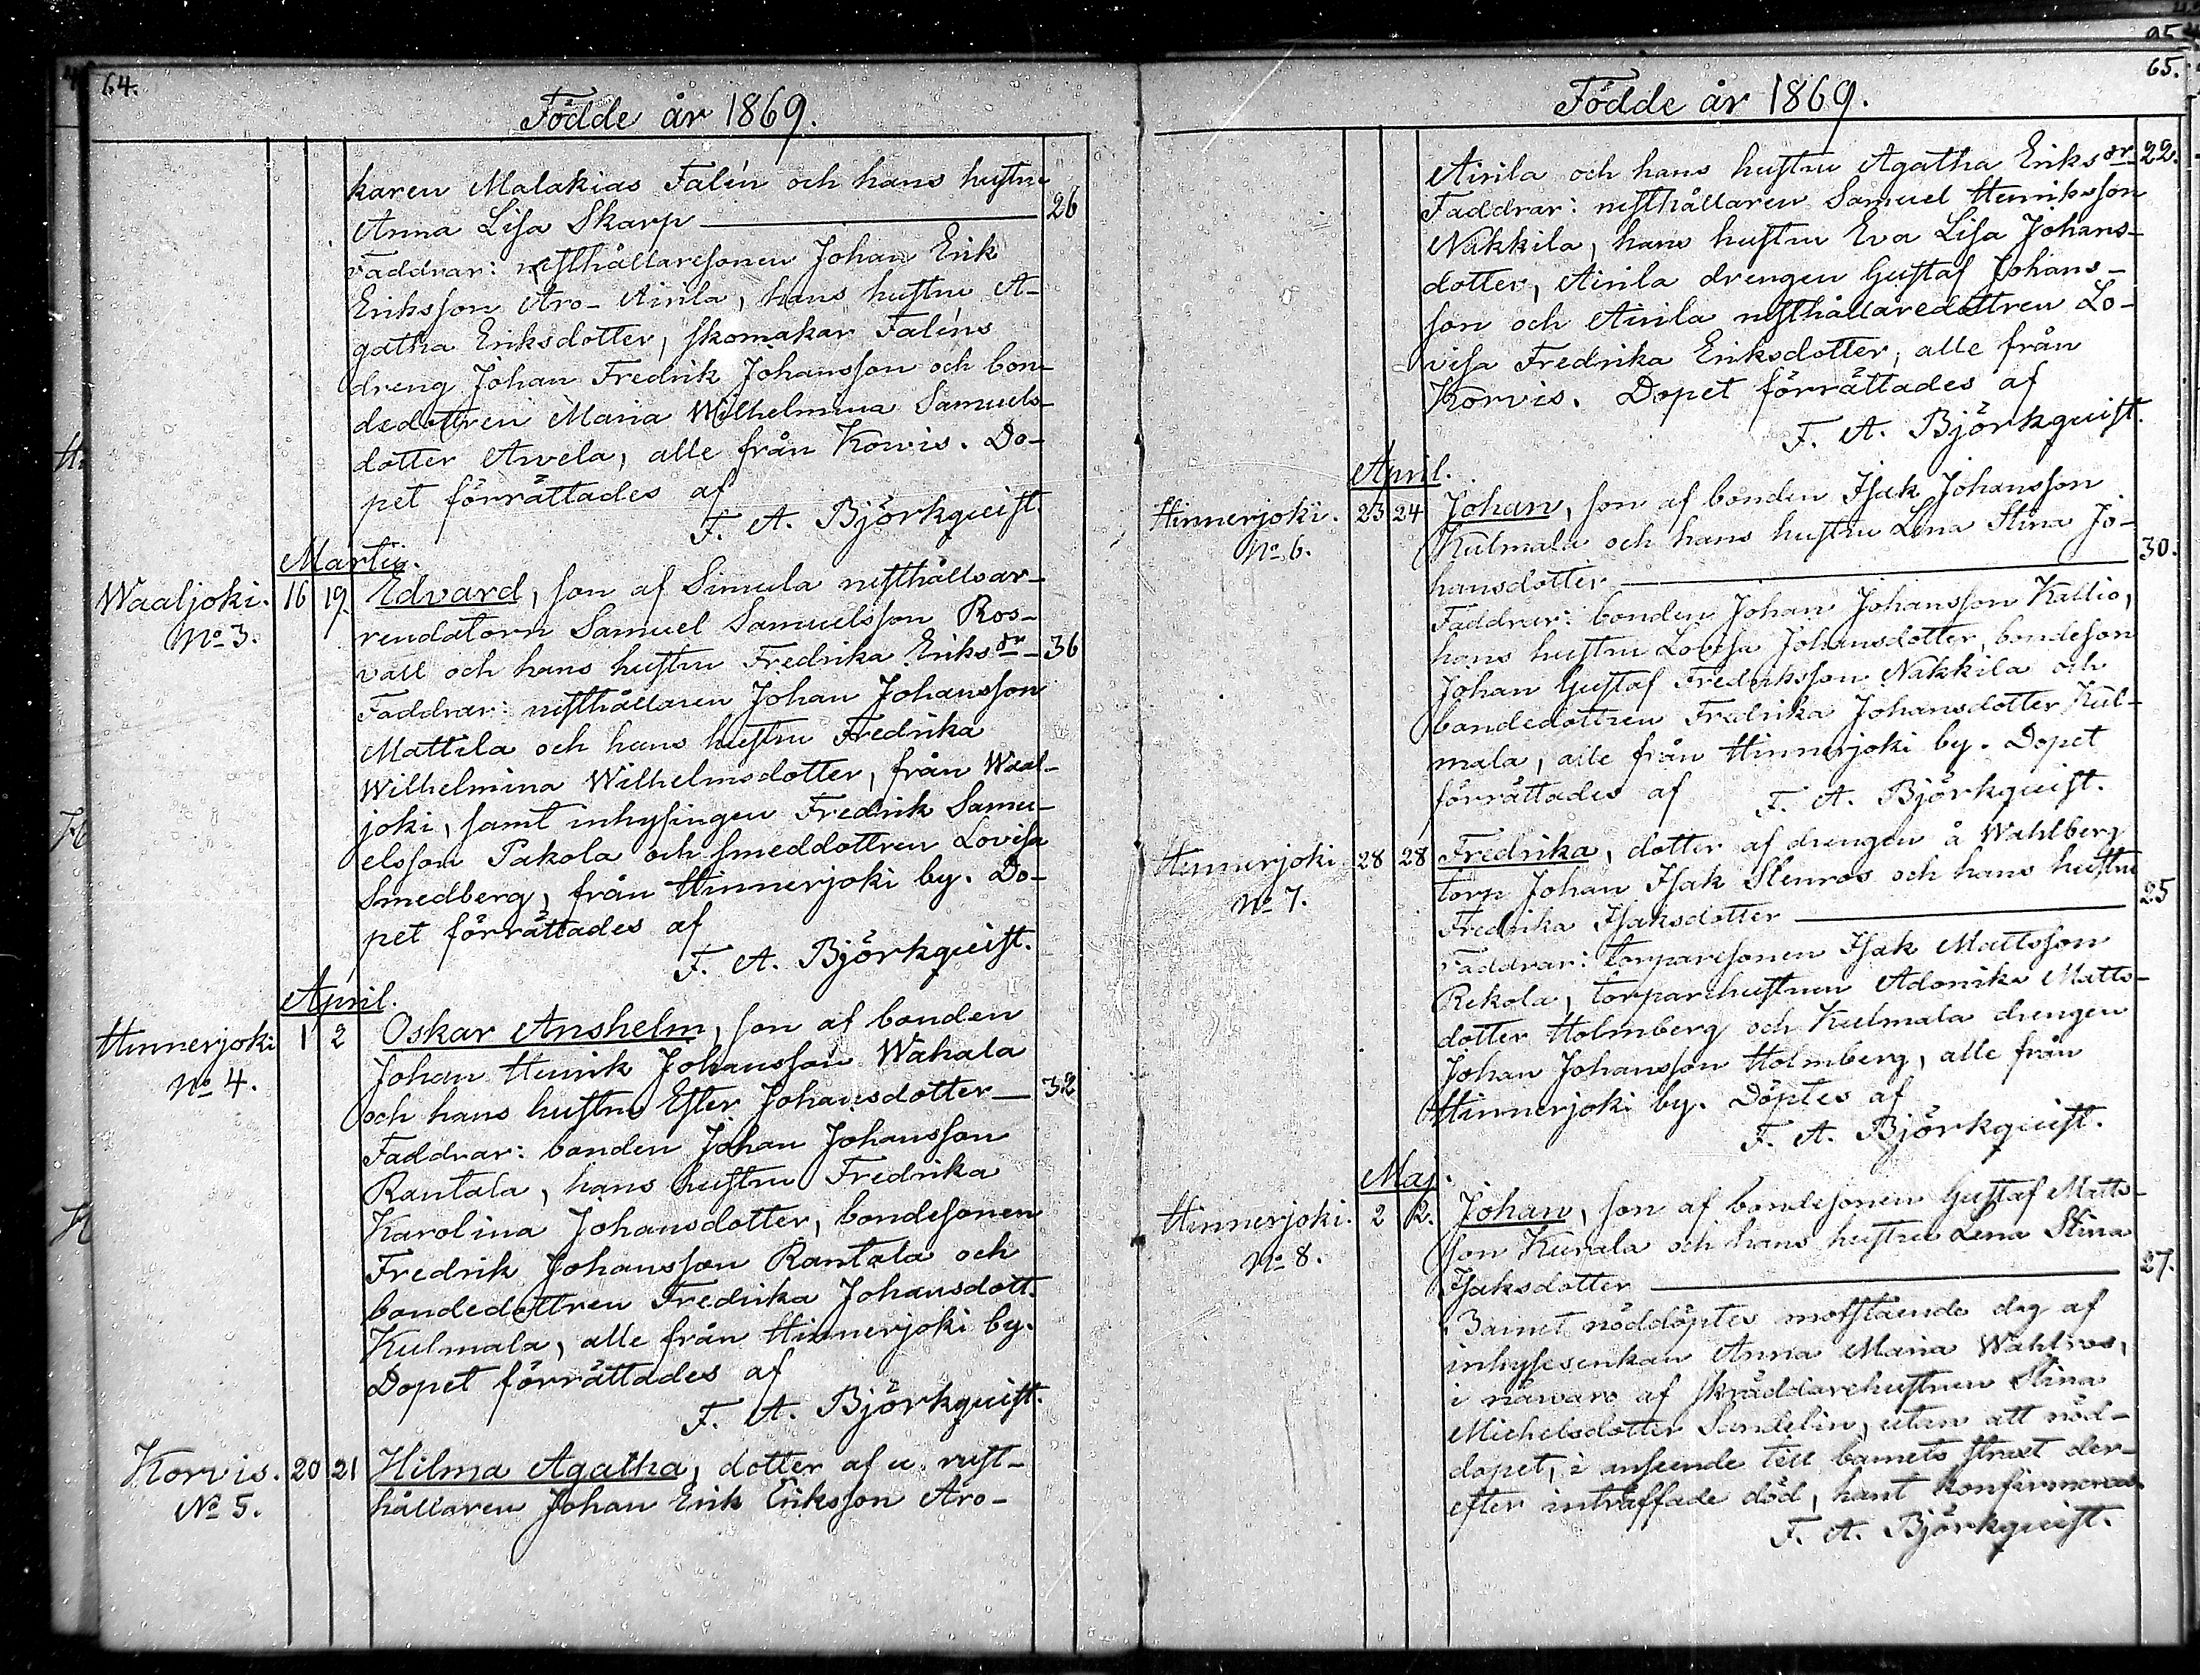 64.
Födde år 1869.
karen Malakias Falén och hans hustru
Anna Lisa Skarp 26
Faddrar: rusthållaresonen Johan Erik
Eriksson Aro-Airila, hans hustru A-
gatha Eriksdotter, skomakar Faléns
dreng Johan Fredrik Johansson och bon-
dedottren Maria Wilhelmina Samuels-
dotter Arvela, alle från Korvis. Do-
pet förrättades af
F. A. Björkqvist.
Martii.
Waaljoki. 16 19. Edvard, son af Simula rusthållsar-
No 3. rendatorn Samuel Samuelsson Ros-
vall och hans hustru Fredrika Eriksdr 36
Faddrar: rusthållaren Johan Johansson
Mattila och hans hustru Fredrika
Wilhelmina Wilhelmsdotter, från Waal-
joki, samt inhysingen Fredrik Samu-
elsson Pakola och smeddottren Lovisa
Smedberg, från Hinnerjoki by. Do-
pet förrättades af
F. A. Björkqvist.
April.
Hinnerjoki 1 2 Oskar Anshelm, son af bonden
No 4. Johan Henrik Johansson Wahala
och hans hustru Ester Johansdotter 32
Faddrar: bonden Johan Johansson
Rantala, hans hustru Fredrika
Karolina Johansdotter, bondesonen
Fredrik Johansson Rantala och
bondedottren Fredrika Johansdott.
Kulmala, alle från Hinnerjoki by.
Dopet förrättades af
F. A. Björkqvist.
Korvis. 20 21 Hilma Agatha, dotter af u. rust-
No 5. hållaren Johan Erik Eriksson Aro-
65.
Födde år 1869.
Airila och hans hustru Agatha Eriksdr 22.
Faddrar: rusthållaren Samuel Henriksson
Nakkila, hans hustru Eva Lisa Johans-
dotter, Airila drengen Gustaf Johans-
son och Airila rusthållaredottren Lo-
visa Fredrika Eriksdotter, alle från
Korvis. Dopet förrättades af
F. A. Björkqvist.
April.
Hinnerjoki. 23 24 Johan, son af bonden Isak Johansson
No 6. Kulmala och hans hustru Lena Stina Jo-
hansdotter 30.
Faddrar: bonden Johan Johansson Kallio,
hans hustru Lovisa Johansdotter, bondeson
Johan Gustaf Fredriksson Nakkila och
bondedottren Fredrika Johansdotter Kul-
mala, alle från Hinnerjoki by. Dopet
förrättades af F. A. Björkqvist.
Hinnerjoki 28 28 Fredrika, dotter af drengen å Wahlberg
No 7. torp Johan Isak Stenros och hans hustru
Fredrika Isaksdotter 25
Faddrar: torparesonen Isak Mattsson
Rekola, torparehustrun Adonika Matts-
dotter Holmberg och Kulmala drengen
Johan Johansson Holmberg, alle från
Hinnerjoki by. Döptes af
F. A. Björkqvist.
Maj.
Hinnerjoki. 2 2. Johan, son af bondesonen Gustaf Matts-
No 8. son Kurala och hans hustru Lena Stina
Isaksdotter 27.
Barnet nöddöptes motstående dag af
inhysesenkan Anna Maria Wahlros,
i närvaro af skräddarehustrun Stina
Michelsdotter Sandelin, utan att nöd-
dopet, i anseende till barnets straxt der-
efter inträffade död, hant konfirmeras.
F. A. Björkqvist.